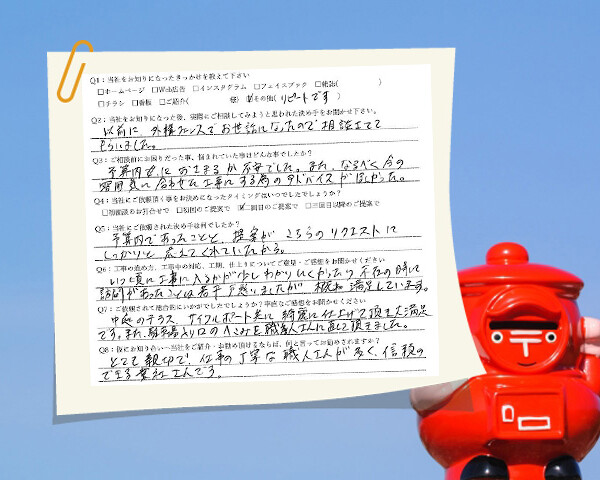 Q1：当社をお知りになったきっかけを教えて下さい
□ホームページ □Web広告 □インスタグラム □フェイスブック □雑誌( )
□チラシ □看板 □ご紹介( 様) ☑その他( リピートです )
Q2：当社をお知りになった後、実際にご相談してみようと思われた決め手をお聞かせ下さい。
以前に、外構フェンスでお世話になったので相談させて
もらいました。
Q3：ご相談前にお困りだった事、悩まれていた事はどんな事でしたか？
予算内におさまるか不安でした。また、なるべく今の
雰囲気に合わせた工事にする為のアドバイスがほしかった。
Q4：当社にご依頼頂く事をお決めになったタイミングはいつでしたでしょうか？
□初面談のお打合せで □初回のご提案で ☑二回目のご提案で □三回目以降のご提案で
Q5：当社にご依頼された決め手は何でしたか？
予算内であったことと、提案がこちらのリクエストに
しっかりと応えてくれていたから。
Q6：工事の進め方、工事中の対応、工期、仕上りについてご意見・ご感想をお聞かせください
いつ頃に工事に入るかが少しわかりにくかったり不在の時に
訪問があったことは若干戸惑いましたが概ね満足しています。
Q7：ご依頼されて総合的にいかがでしたでしょうか？率直なご感想をお聞かせください
中庭のテラス、サイクルポート共に綺麗に仕上げて頂き大満足
です。また、駐車場入り口のへこみを職人さんに直して頂きました。
Q8：仮にお知り合いへ当社をご紹介・お勧め頂けるならば、何と言ってお勧めされますか？
とても親切で、仕事の丁寧な職人さんが多く、信頼の
できる業社さんです。